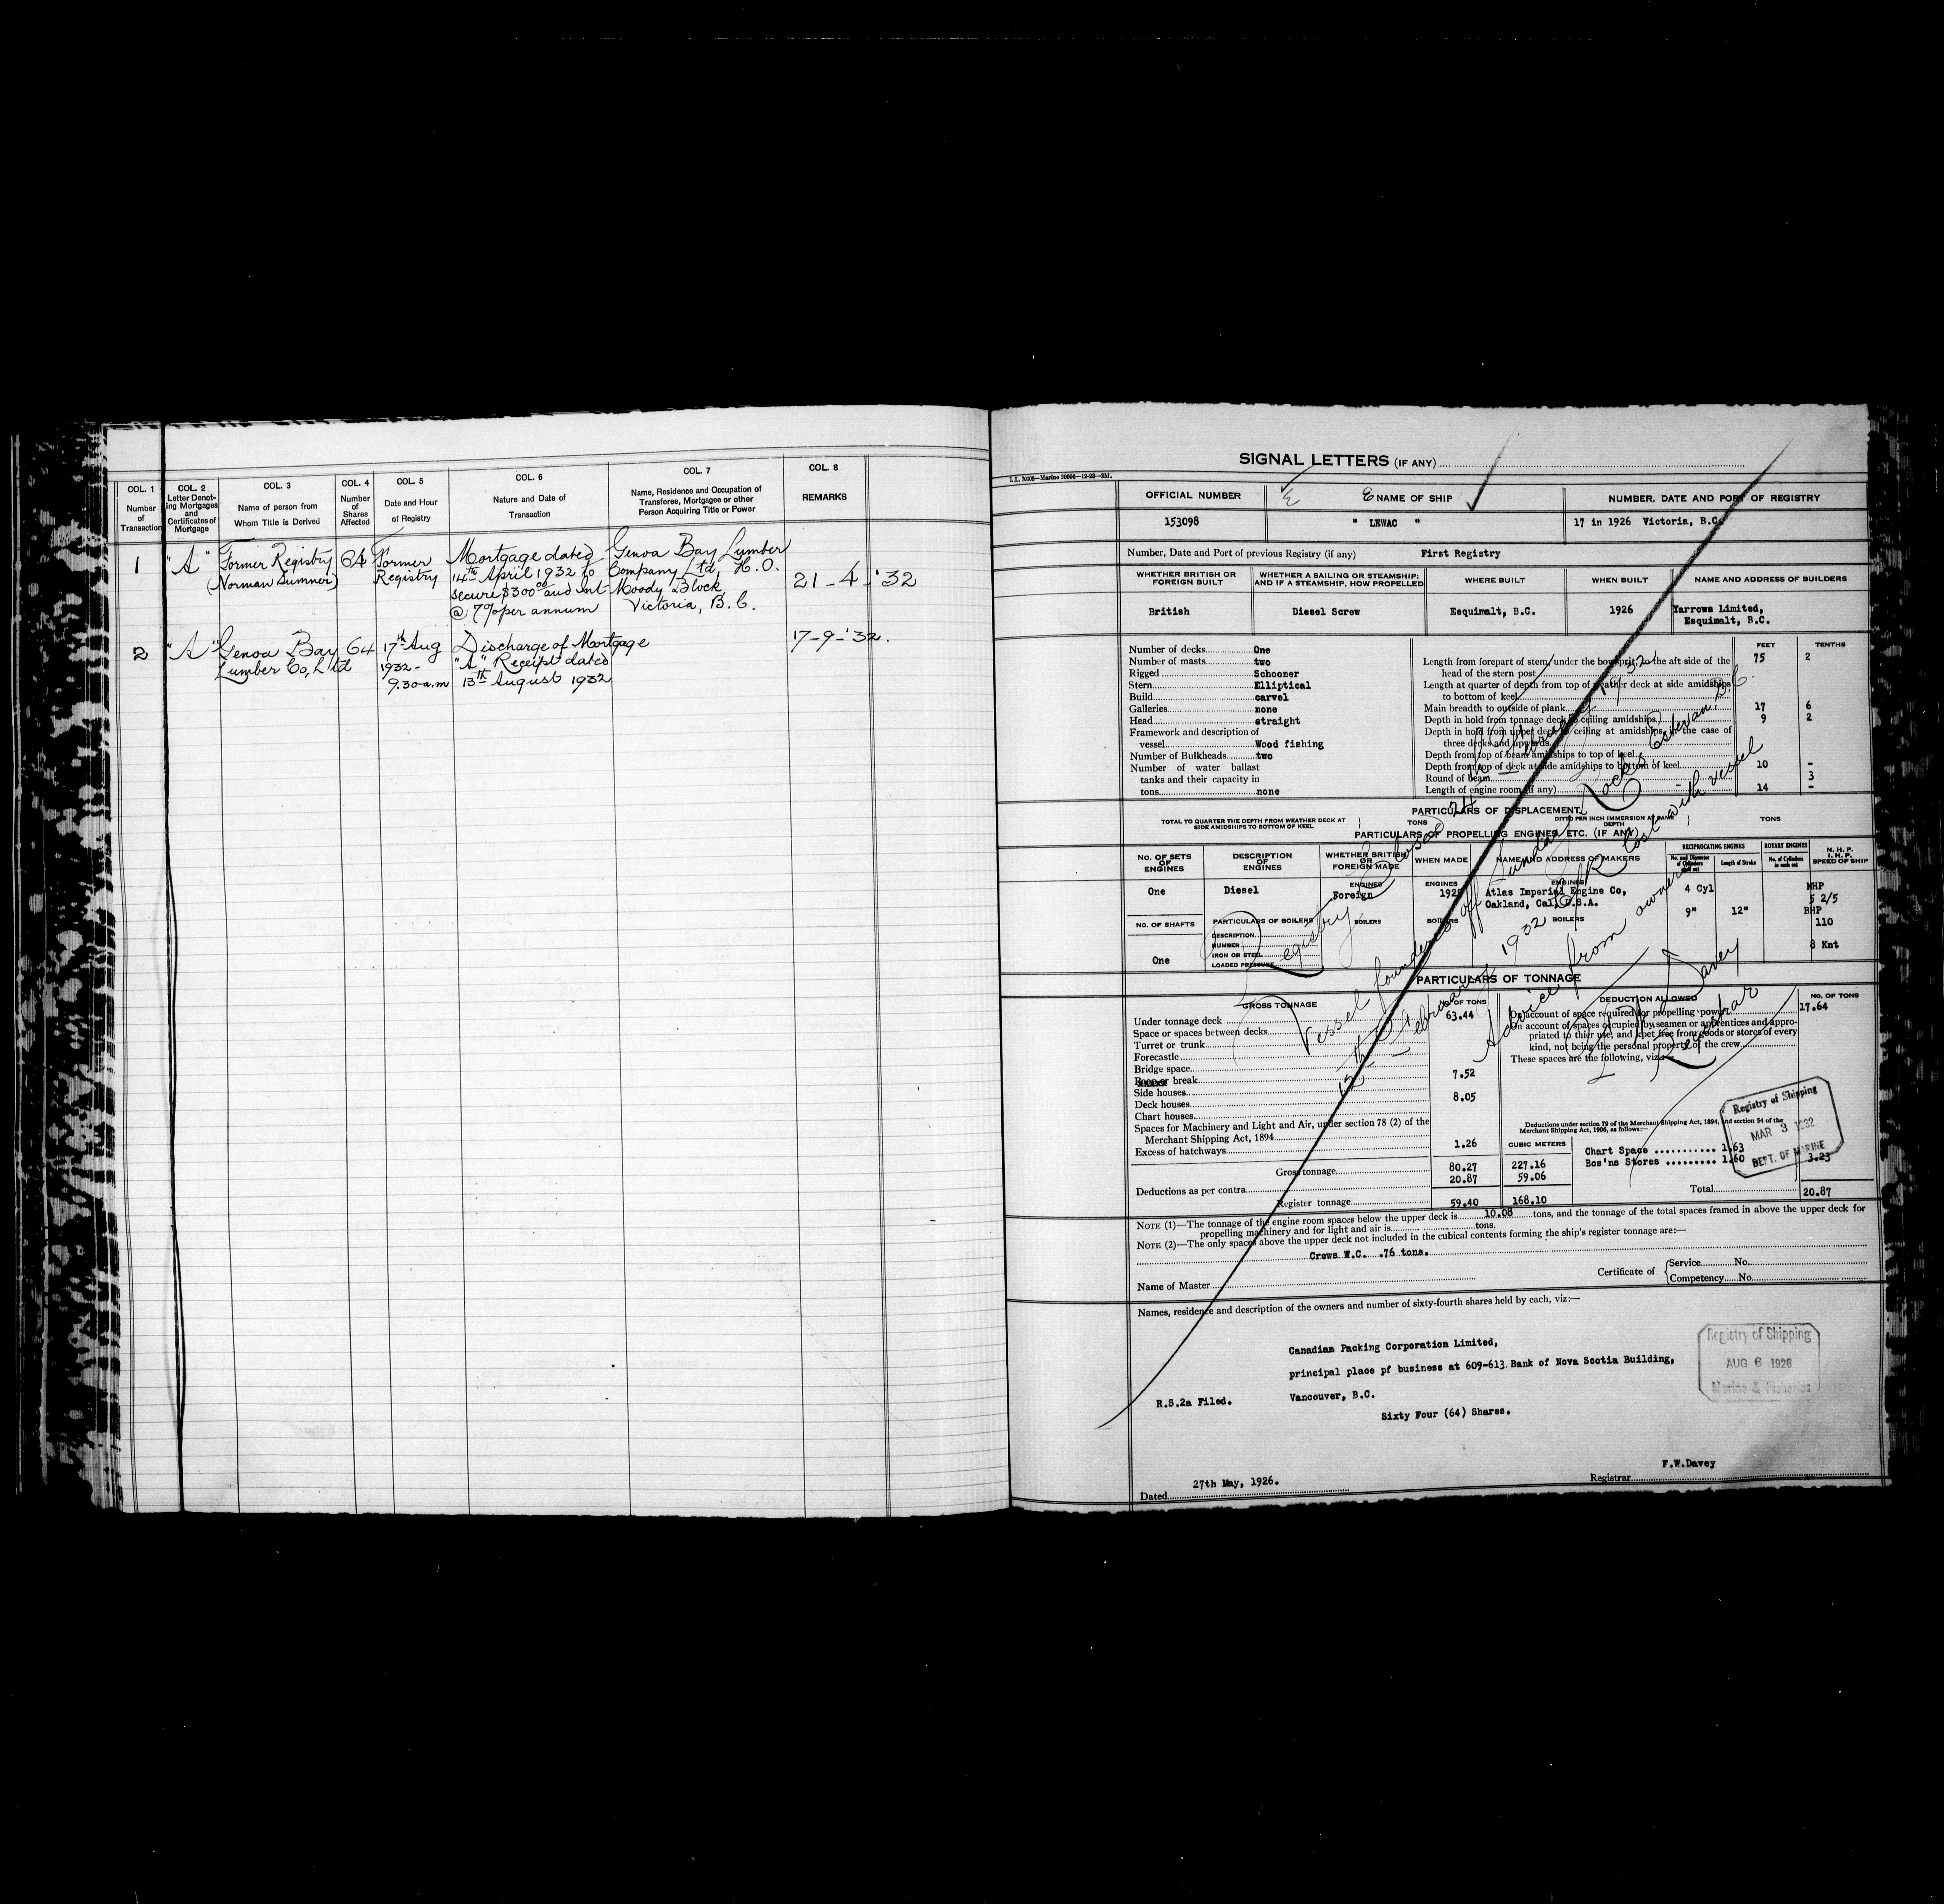 COL. 1
Number
of
Transaction
COL. 2
Letter Denot-
ing Mortgages
and
Certificates of
Mortgage
COL. 3
Name of person from
Whom Title is Derived
COL. 4
Number
of
Shares
Affected
COL. 5
Date and Hour
of Registry
COL. 6
Nature and Date of
Transaction
COL. 7
Name, Residence and Occupation of
Transferee, Mortgagee or other
Person Acquiring Title or Power
COL. 8
REMARKS
1
"A"
Former Registry
(Norman Sumner)
64
Former
Registry
Mortgage dated
14th April 1932 to
secure $300.00 and int
@ 7% per annum
Genoa Bay Lumber
Company Ltd, H.O.
Moody Block,
Victoria, B.C.
21-4-'32
2
"A"
Genoa Bay
Lumber Co, Ltd
64
17th Aug
1932-
9.30 a.m
Discharge of Mortgage
"A" Receipt dated
13th August 1932
17-9-'32.
SIGNAL LETTERS (IF ANY)
OFFICIAL NUMBER
NAME OF SHIP
NUMBER, DATE AND PORT OF REGISTRY
153098
" LEWAC "
17 in 1926 Victoria, B.C.
Number, Date and Port of previous Registry (if any) First Registry
WHETHER BRITISH OR
FOREIGN BUILT
WHETHER A SAILING OR STEAMSHIP;
AND IF A STEAMSHIP, HOW PROPELLED
WHERE BUILT
WHEN BUILT
NAME AND ADDRESS OF BUILDERS
British
Diesel Screw
Esquimalt, B.C.
1926
Yarrows Limited,
Esquimalt, B.C.
Number of decks One
Number of masts two
Rigged Schooner
Stern Elliptical
Build carvel
Galleries none
Head straight
Framework and description of
vessel Wood fishing
Number of Bulkheads two
Number of water ballast
tanks and their capacity in
tons none
FEET TENTHS
Length from forepart of stem, under the bowsprit, to the aft side of the
head of the stern post 75 2
Length at quarter of depth from top of weather deck at side amidships
to bottom of keel
Main breadth to outside of plank 17 6
Depth in hold from tonnage deck to ceiling amidships 9 2
Depth in hold from upper deck to ceiling amidships, in the case of
three decks and upwards
Depth from top of beam amidships to top of keel
Depth from top of deck at side amidships to bottom of keel 10 -
Round of beam 3
Length of engine room (if any) 14 -
PARTICULARS OF DISPLACEMENT.
TOTAL TO QUARTER THE DEPTH FROM WEATHER DECK AT
SIDE AMIDSHIPS TO BOTTOM OF KEEL
TONS
DITTO PER INCH IMMERSION AT SAME
DEPTH
TONS
PARTICULARS OF PROPELLING ENGINES, ETC. (IF ANY)
NO. OF SETS
OF
ENGINES
DESCRIPTION
OF
ENGINES
WHETHER BRITISH
OR
FOREIGN MADE
WHEN MADE
NAME AND ADDRESS OF MAKERS
RECIPROCATING ENGINES
No. and Diameter
of Cylinders
in each set
Length of Stroke
ROTARY ENGINES
No. of Cylinders
in each set
N. H. P.
I. H. P.
SPEED OF SHIP
One
Diesel
ENGINES
Foreign
ENGINES
1925
ENGINES
Atlas Imperial Engine Co,
Oakland, Cal, U.S.A.
4 Cyl
9"
12"
NHP
5 2/5
BHP
110
8 Knt
NO. OF SHAFTS
One
PARTICULARS OF BOILERS
DESCRIPTION
NUMBER
IRON OR STEEL
LOADED PRESSURE
BOILERS
BOILERS
BOILERS
PARTICULARS OF TONNAGE
GROSS TONNAGE
NO. OF TONS
Under tonnage deck 63.44
Space or spaces between decks
Turret or trunk
Forecastle
Bridge space
break 7.52
Side houses
Deck houses 8.05
Chart houses
Spaces for Machinery and Light and Air, under section 78 (2) of the
Merchant Shipping Act, 1894
Excess of hatchways 1.26
CUBIC METERS
Gross tonnage 80.27 227.16
Deductions as per contra 20.87 59.06
Register tonnage 59.40 168.10
DEDUCTION ALLOWED
NO. OF TONS
On account of space required for propelling power 17.64
On account of spaces occupied by seamen or apprentices and appro-
priated to their use, and kpet free from goods or stores of every
kind, not being the personal property of the crew
These spaces are the following, viz:
Deductions under section 79 of the Merchant Shipping Act, 1894, and section 54 of the
Merchant Shipping Act, 1906, as follows:—
Chart Space 1.63
Bos'ns Stores 1.60 3.23
Total 20.87
Registry of Shipping
MAR 3 1932
DEPT. OF MARINE
NOTE (1)—The tonnage of the engine room spaces below the upper deck is 10.08 tons, and the tonnage of the total spaces framed in above the upper deck for
propelling machinery and for light and air is tons.
NOTE (2)—The only spaces above the upper deck not included in the cubical contents forming the ship's register tonnage are:—
Crews W.C. .76 tons.
Name of Master
Certificate of
Service No.
Competency No.
Names, residence and description of the owners and number of sixty-fourth shares held by each, viz:—
Canadian Packing Corporation Limited,
principal place pf business at 609-613 Bank of Nova Scotia Building,
Vancouver, B.C.
R.S.2a Filed.
Sixty Four (64) Shares.
Registry of Shipping
AUG 6 1926
Marine & Fisheries
F.W.Davey
Registrar
Dated 27th May, 1926.
Registry Closed 24th February 1932
Vessel foundered off Sunday Rocks, Estevan, B.C.
12th February 1932 C/R Lost with vessel
Advice from owners
Davey
Registrar